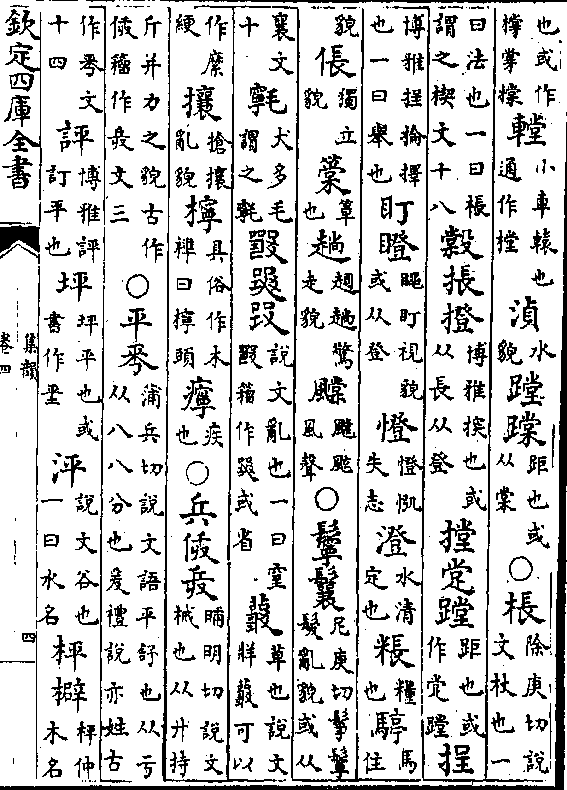 也或作橕掌㯑 䡠小車轅也通作樘 湞水貌 蹚距也或从棠 ○棖除庚切說文杖也一
曰法也一曰棖謂之楔文十八 掁撜博雅揬也或从長从登 摚蹚距也或作蹚
博雅掄擇也一曰舉也 盯瞪盯視貌或从登 憕失志 澄水清定也 粻糧也 馬住
貌 倀獨立貌 簟也 趟驚走貌 風聲 ○鬡鬤尼庚切鬇鬡髮亂貌或从
襄文十 犬多毛謂之 說文亂也一曰窒籀作或省 草也說文牂可以
作縻綆 攘搶攘亂貌 檸具俗作木襍曰檸頭 疾也 ○兵晡明切說文械也从廾持
斤并力之貌古作籀作文三 ○平蒲兵切說文語平舒也从亏从八八分也爰禮說亦姓古
作文十四 評博雅評訂平也 坪坪平也或書作 泙說文谷也一曰水名 枰枰仲木名
欽定四庫全書
集韻
卷四
四